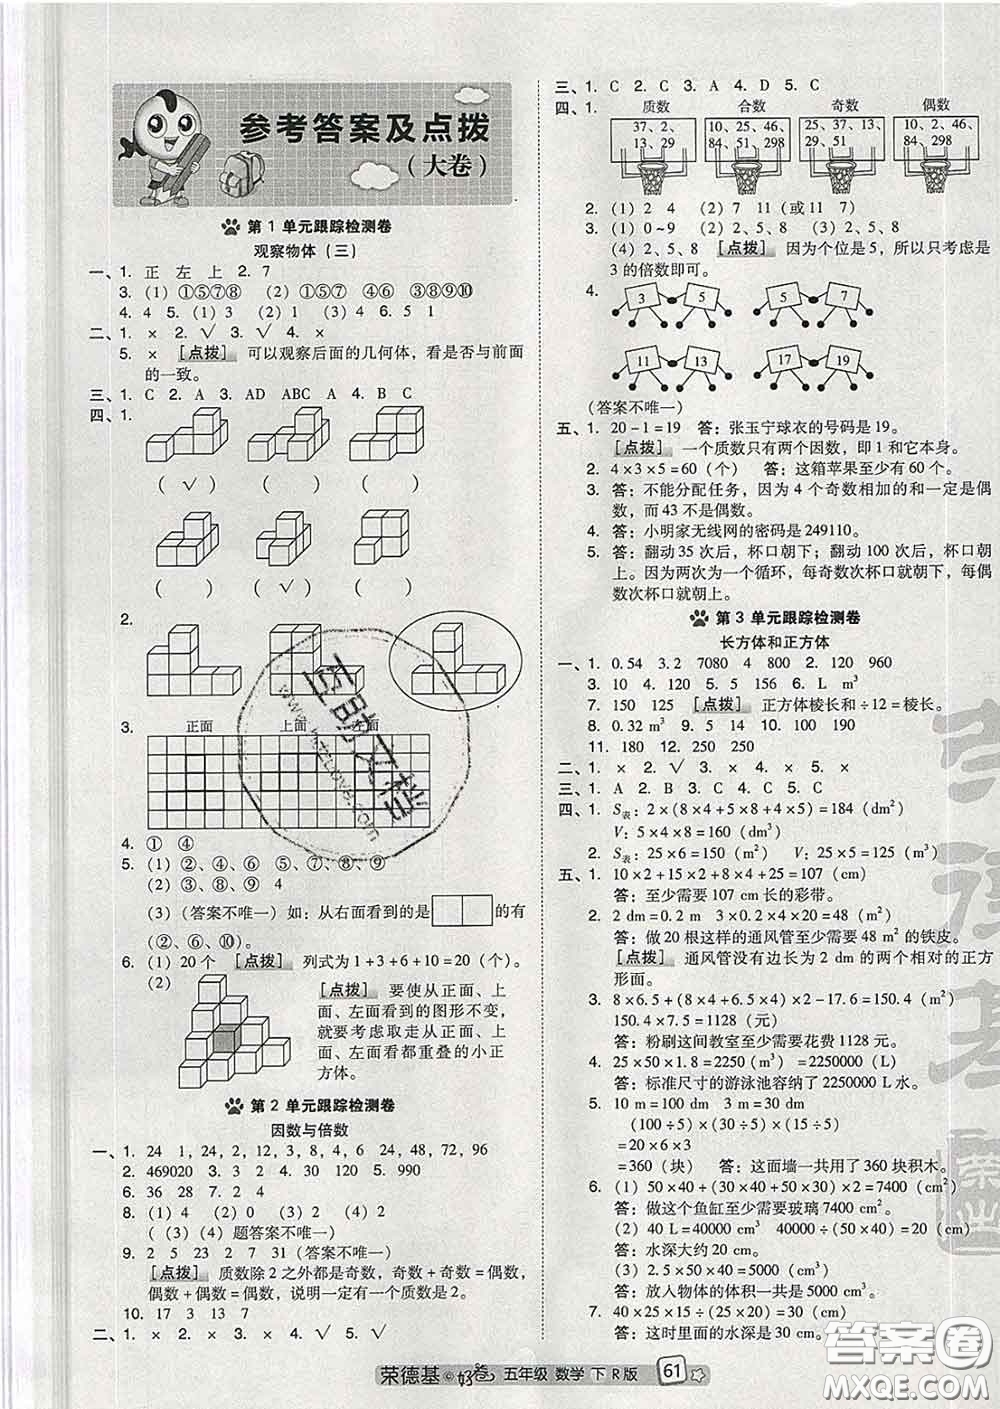 参考答案及点拨
（大卷）
第 1 单元跟踪检测卷
观察物体（三）
一、1. 正 左 上 2. 7
3. (1) ①⑤⑦⑧ (2) ①⑤⑦ ④⑥ ③⑧⑨⑩
4. 4 5. (1) 3 (2) 1 (3) 4 6. 5 1
二、1. × 2. √ 3. √ 4. ×
5. × [点拨] 可以观察后面的几何体，看是否与前面
的一致。
三、1. C 2. A 3. AD ABC A 4. B C
四、1.
( ) ( √ ) ( ) ( )
( ) ( √ ) ( )
2.
3. 正面 上面 左面
4. ① ④
5. (1) ②、④、⑥ ⑤、⑦、⑧、⑨
(2) ③、⑧、⑨ 4
(3)（答案不唯一）如：从右面看到的是 的有
(②、⑥、⑩)。
6. (1) 20 个 [点拨] 列式为 1 + 3 + 6 + 10 = 20（个）。
(2) [点拨] 要使从正面、上
面、左面看到的图形不变，
就要考虑取走从正面、上
面、左面看都重叠的小正
方体。
第 2 单元跟踪检测卷
因数与倍数
一、1. 24 1, 24, 2, 12, 3, 8, 4, 6 24, 48, 72, 96
2. 469020 3. 2 4. 30 120 5. 990
6. 36 28 7. 2 4
8. (1) 4 (2) 0 (3) 2 (4) 1
（(3) (4) 题答案不唯一）
9. 2 5 23 2 7 31（答案不唯一）
[点拨] 质数除 2 之外都是奇数，奇数 + 奇数 = 偶数，
偶数 + 偶数 = 偶数，说明一定有一个质数是 2。
10. 17 3 13 7
二、1. × 2. × 3. × 4. √ 5. √
三、1. C 2. C 3. A 4. D 5. C
四、1. 质数 合数 奇数 偶数
37、2、 10、25、46、 25、37、13、 10、2、46、
13、29 84、51、298 29、51 84、298
2. (1) 2 4 (2) 7 11（或 11 7）
3. (1) 0 ~ 9 (2) 2、5、8 (3) 2、5、8
(4) 2、5、8 [点拨] 因为个位是 5，所以只考虑是
3 的倍数即可。
4. 3 5 5 7
11 13 17 19
（答案不唯一）
五、1. 20 - 1 = 19 答：张玉宁球衣的号码是 19。
[点拨] 一个质数只有两个因数，即 1 和它本身。
2. 4 × 3 × 5 = 60（个） 答：这箱苹果至少有 60 个。
3. 答：不能分配任务，因为 4 个奇数相加的和一定是偶
数，而 43 不是偶数。
4. 答：小明家无线网的密码是 249110。
5. 答：翻动 35 次后，杯口朝下；翻动 100 次后，杯口朝
上。因为两次为一个循环，每奇数次杯口就朝下，每偶
数次杯口就朝上。
第 3 单元跟踪检测卷
长方体和正方体
一、1. 0.54 3.2 7080 4 800 2. 120 960
3. 10 4. 120 5. 5 156 6. L m³
7. 150 125 [点拨] 正方体棱长和 ÷ 12 = 棱长。
8. 0.32 m³ 9. 5 14 10. 100 190
11. 180 12. 250 250
二、1. × 2. √ 3. × 4. × 5. ×
三、1. A 2. B 3. C 4. C 5. C
四、1. S表：2 × (8 × 4 + 5 × 8 + 4 × 5) = 184（dm²）
V：5 × 4 × 8 = 160（dm³）
2. S表：25 × 6 = 150（m²） V：25 × 5 = 125（m³）
五、1. 10 × 2 + 15 × 2 + 8 × 4 + 25 = 107（cm）
答：至少需要 107 cm 长的彩带。
2. 2 dm = 0.2 m 3 × 0.2 × 4 × 20 = 48（m²）
答：做 20 根这样的通风管至少需要 48 m² 的铁皮。
[点拨] 通风管没有边长为 2 dm 的两个相对的正方
形面。
3. 8 × 6.5 + (8 × 4 + 6.5 × 4) × 2 - 17.6 = 150.4（m²）
150.4 × 7.5 = 1128（元）
答：粉刷这间教室至少需要花费 1128 元。
4. 25 × 50 × 1.8 = 2250（m³） = 2250000（L）
答：标准尺寸的游泳池容纳了 2250000 L 水。
5. 10 m = 100 dm 3 m = 30 dm
(100 ÷ 5) × (30 ÷ 5) × (15 ÷ 5)
= 20 × 6 × 3
= 360（块） 答：这面墙一共用了 360 块积木。
6. (1) 50 × 40 + (30 × 50 + 30 × 40) × 2 = 7400（cm²）
答：做这个鱼缸至少需要玻璃 7400 cm²。
(2) 40 L = 40000 cm³ 40000 ÷ (50 × 40) = 20（cm）
答：水深大约 20 cm。
(3) 2.5 × 50 × 40 = 5000（cm³）
答：放入物体的体积一共是 5000 cm³。
7. 40 × 25 × 15 ÷ (25 × 20) = 30（cm）
答：这时里面的水深是 30 cm。
荣德基 好卷 五年级 数学 下 R 版 61
答案圈
MXQE.COM